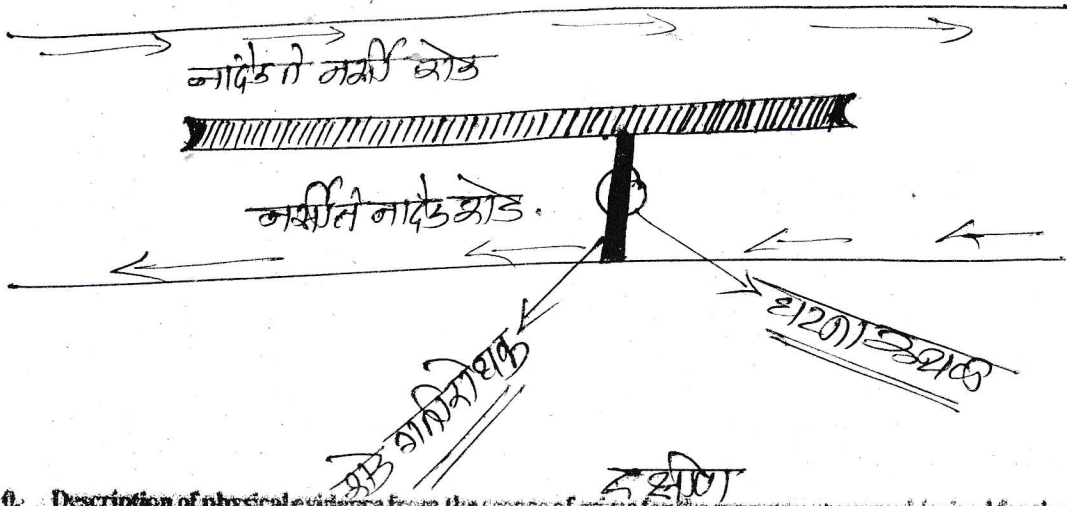 नांदेड ते नर्सी रोड
नर्सी ते नांदेड रोड.
घटना स्थळ
रोड गतिरोधक
दक्षिण
0. Description of physical evidence from the scene of